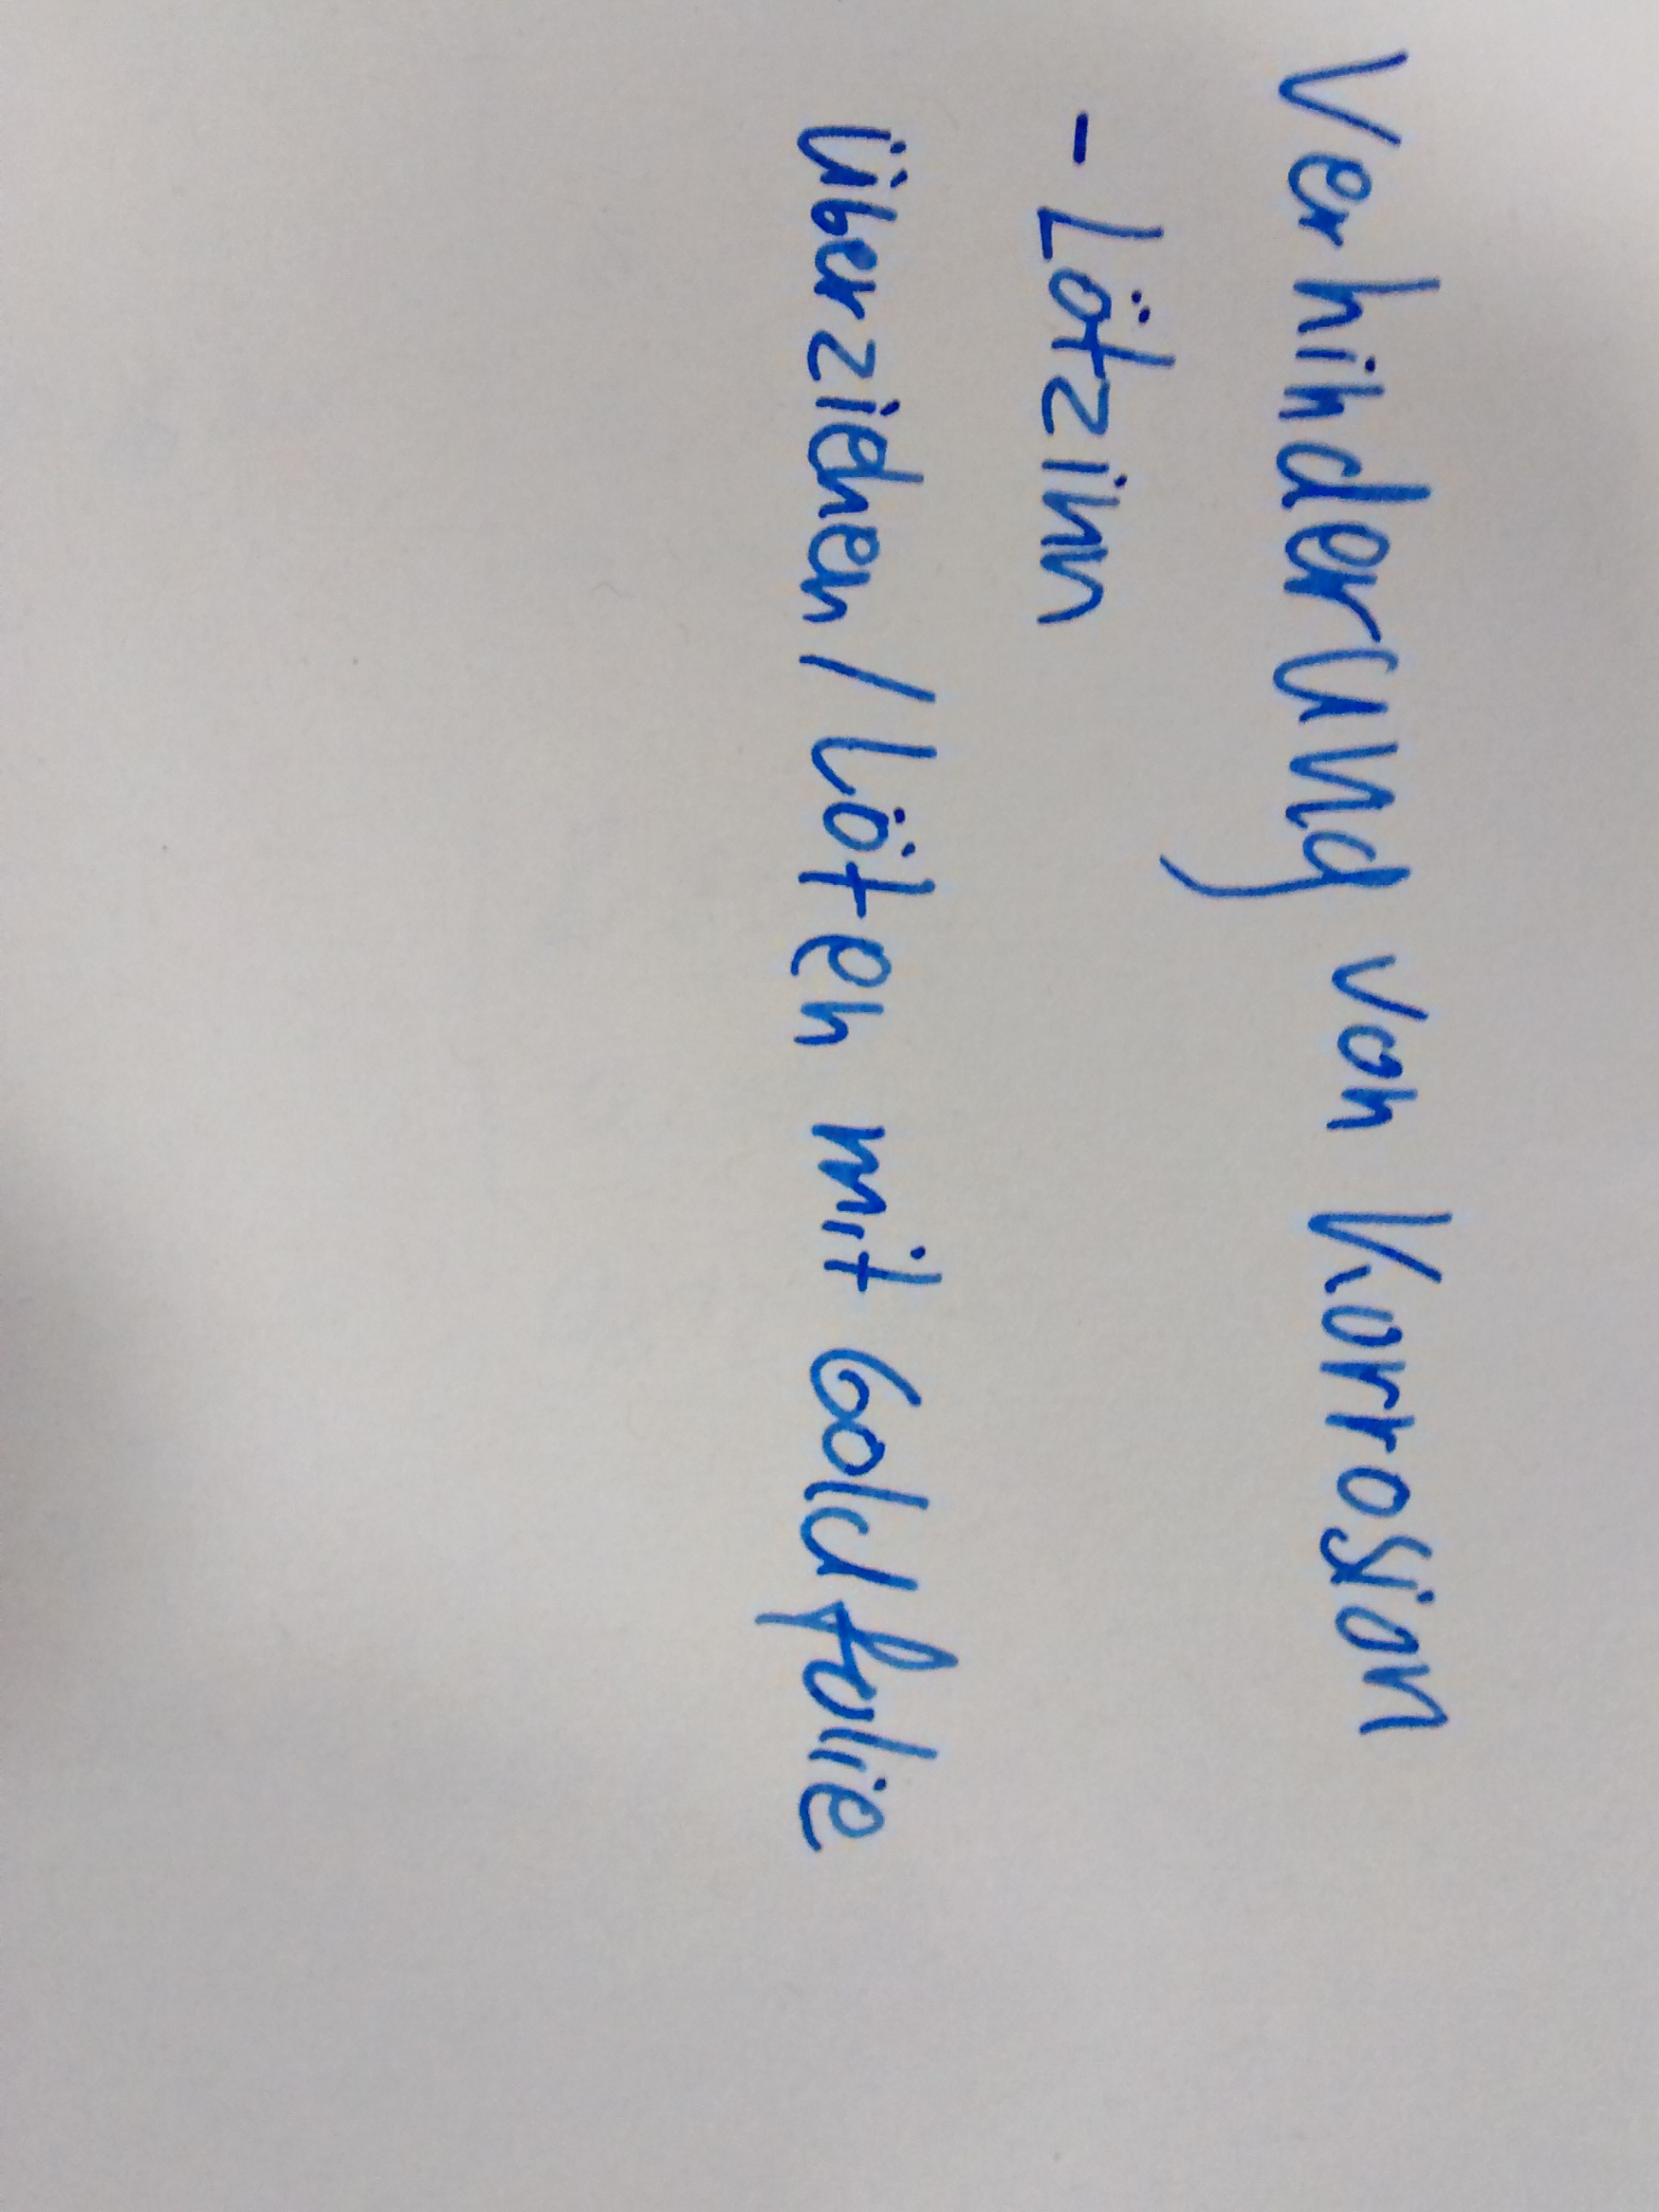 Verhinderung von Korrossion
- Lötzinn
überziehen / Löten mit Goldfolie